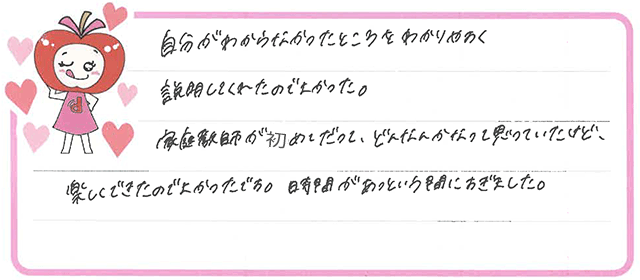 自分がわからなかったところをわかりやすく
説明してくれたのでよかった。
家庭教師が初めてだって、どんなんかなって思っていたけど、
楽しくできたのでよかったです。時間があっという間にすぎました。